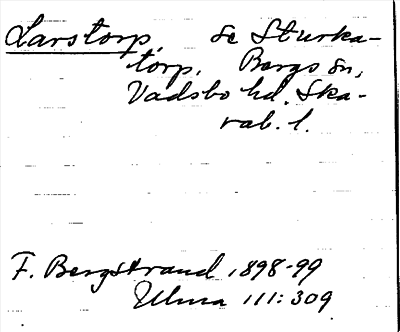 Larstorp, se Sturka-
torp, Bergs sn,
Vadsbo hd. Ska-
rab. l.
F. Bergstrand 1898-99
Ulma 111:309